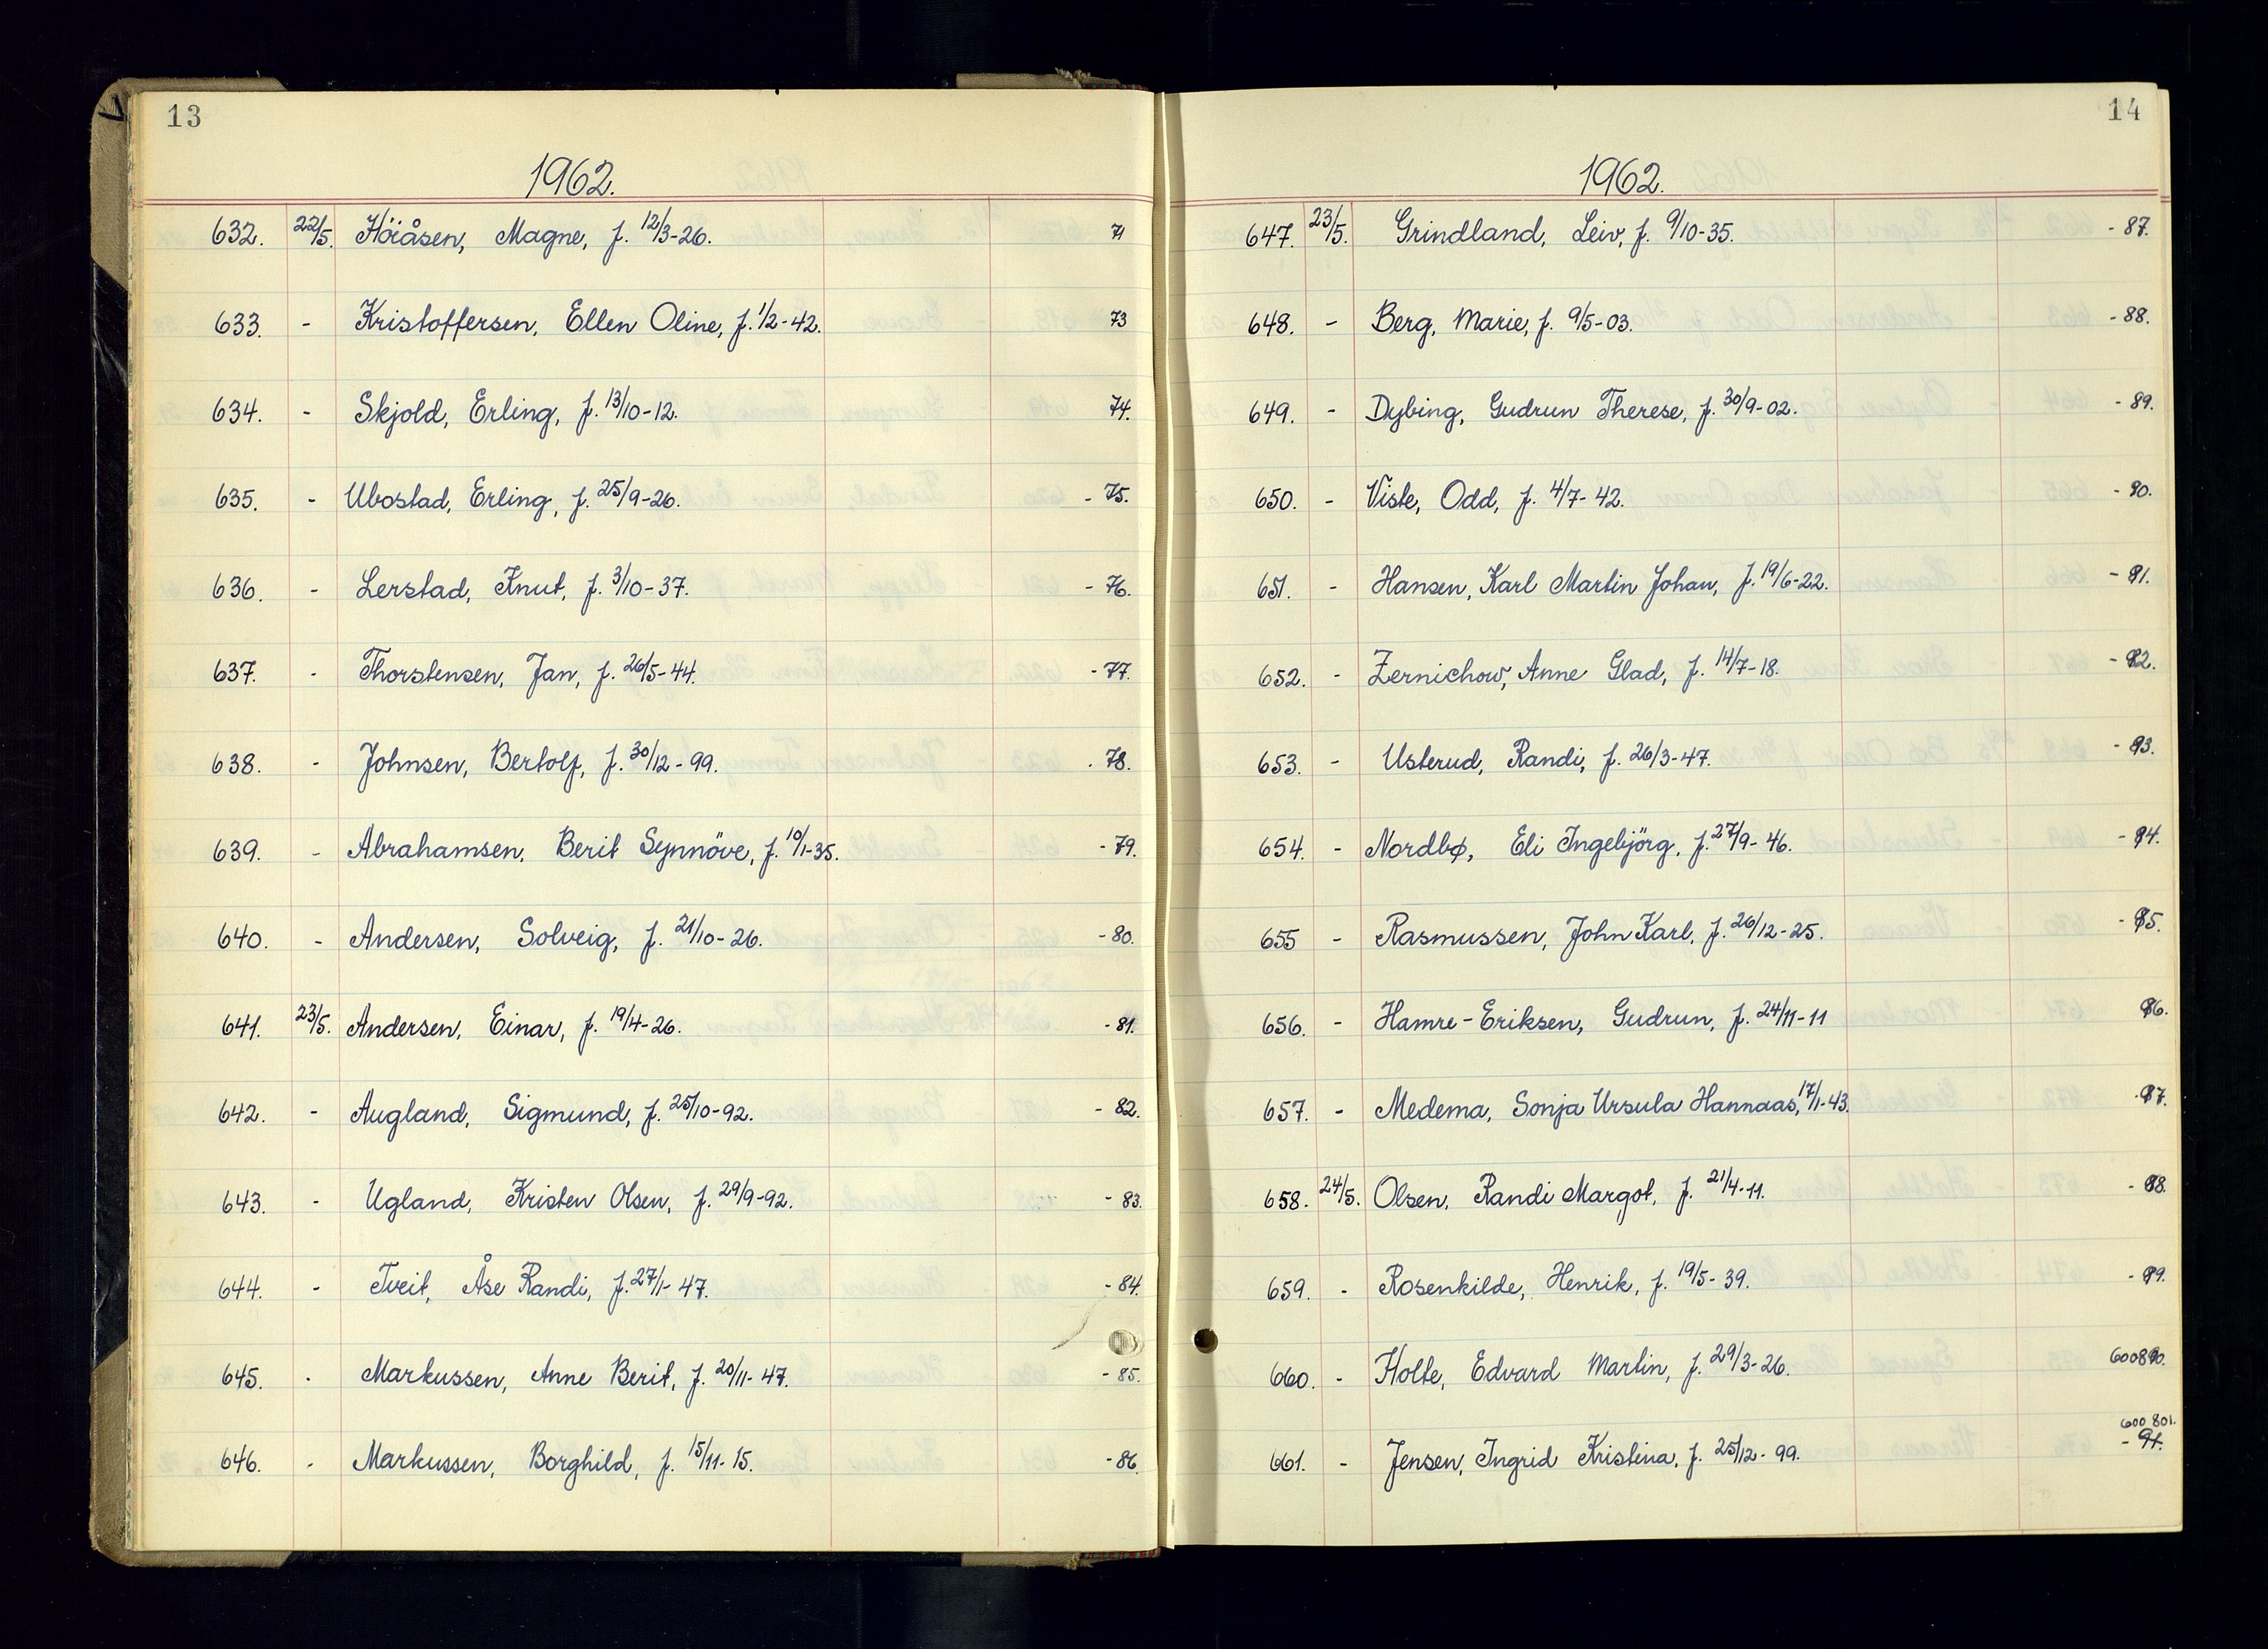 13
1962.
632. 22/5. Höiåsen, Magne, f. 12/3-26. 71
633. - Kristoffersen, Ellen Oline, f. 1/2-42. 73
634. - Skjold, Erling, f. 13/10-12. 74.
635. - Ubostad, Erling, f. 25/9-26. - 75.
636. - Lerstad, Knut, f. 3/10-37. - 76.
637. - Thorstensen, Jan, f. 26/5-44. - 77.
638. - Johnsen, Bertolf, f. 30/12-99. - 78.
639. - Abrahamsen, Berit Synnöve, f. 10/1-35. - 79.
640. - Andersen, Solveig, f. 21/10-26. - 80.
641. 23/5. Andersen, Einar, f. 19/4-26. - 81.
642. - Augland, Sigmund, f. 25/10-92. - 82.
643. - Ugland, Kristen Olsen, f. 29/9-92. - 83.
644. - Tveit, Åse Randi, f. 27/1-47. - 84.
645. - Markussen, Anne Berit, f. 20/11-47. - 85.
646. - Markussen, Borghild, f. 15/11-15. - 86.
14
1962.
647. 23/5. Grindland, Leiv, f. 9/10-35. - 87.
648. - Berg, Marie, f. 9/5-03. - 88.
649. - Dybing, Gudrun Therese, f. 30/9-02. - 89.
650. - Viste, Odd, f. 4/7-42. - 90.
651. - Hansen, Karl Martin Johan, f. 19/6-22. - 91.
652. - Zernichow, Anne Glad, f. 14/7-18. - 92.
653. - Usterud, Randi, f. 26/3-47. - 93.
654. - Nordbø, Eli Ingebjörg, f. 27/9-46. - 94.
655 - Rasmussen, John Karl, f. 26/12-25. - 95.
656. - Hamre-Eriksen, Gudrun, f. 24/11-11 96.
657. - Medema, Sonja Ursula Hannaas, 17/1-43. 97.
658. 24/5. Olsen, Randi Margot, f. 21/4-11. - 98.
659. - Rosenkilde, Henrik, f. 19/5-39. - 99.
660. - Holte, Edvard Martin, f. 29/3-26.
600 801.
661. - Jensen, Ingrid Kristina, f. 25/12-99. - 91.